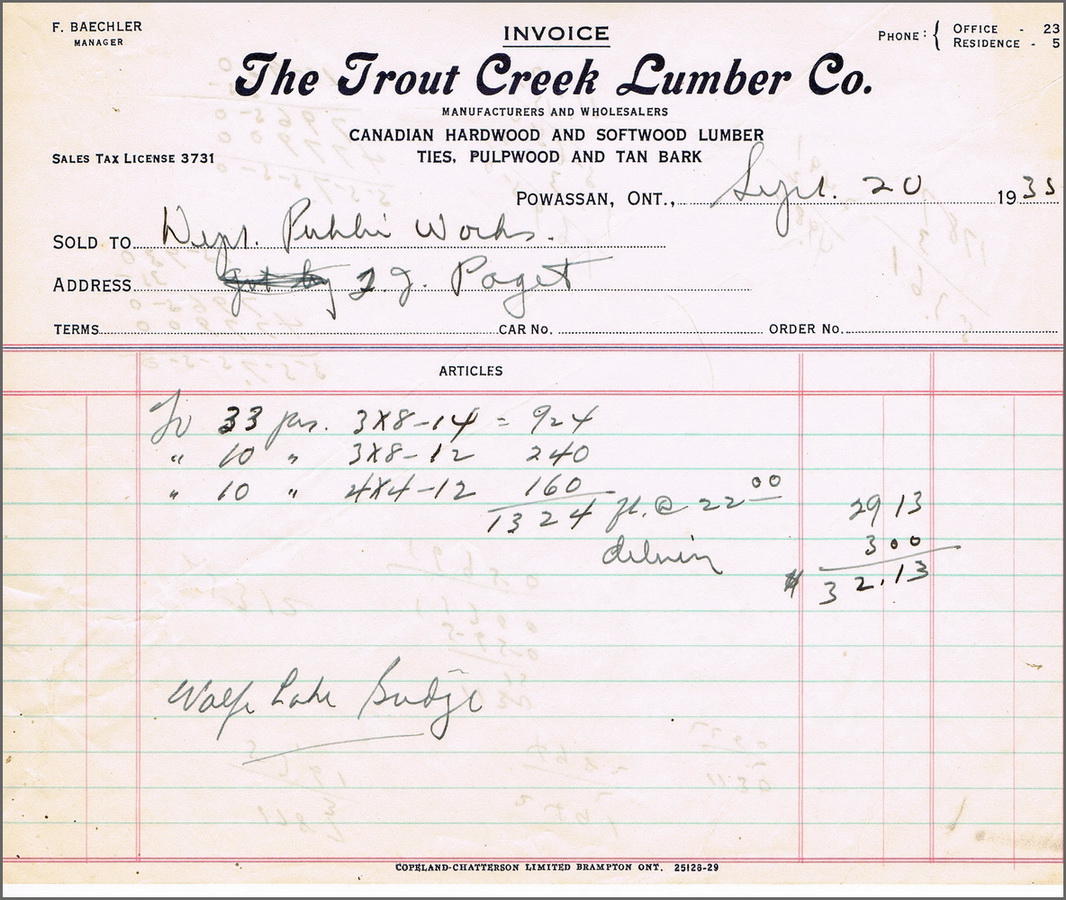 F. BAECHLER
MANAGER
INVOICE
PHONE: { OFFICE - 23
RESIDENCE - 5
The Trout Creek Lumber Co.
MANUFACTURERS AND WHOLESALERS
CANADIAN HARDWOOD AND SOFTWOOD LUMBER
SALES TAX LICENSE 3731
TIES, PULPWOOD AND TAN BARK
POWASSAN, ONT., Sept. 20 1935
SOLD TO Dept. Public Works.
ADDRESS J. Paget
TERMS CAR No. ORDER No.
ARTICLES
To 33 pcs. 3X8-14 = 924
" 10 " 3X8-12 240
" 10 " 4X4-12 160
1324 ft. @ 22 00 29 13
3 00
$ 32.13
Wolfe Lake Bridge
COPELAND-CHATTERSON LIMITED BRAMPTON ONT. 25128-29